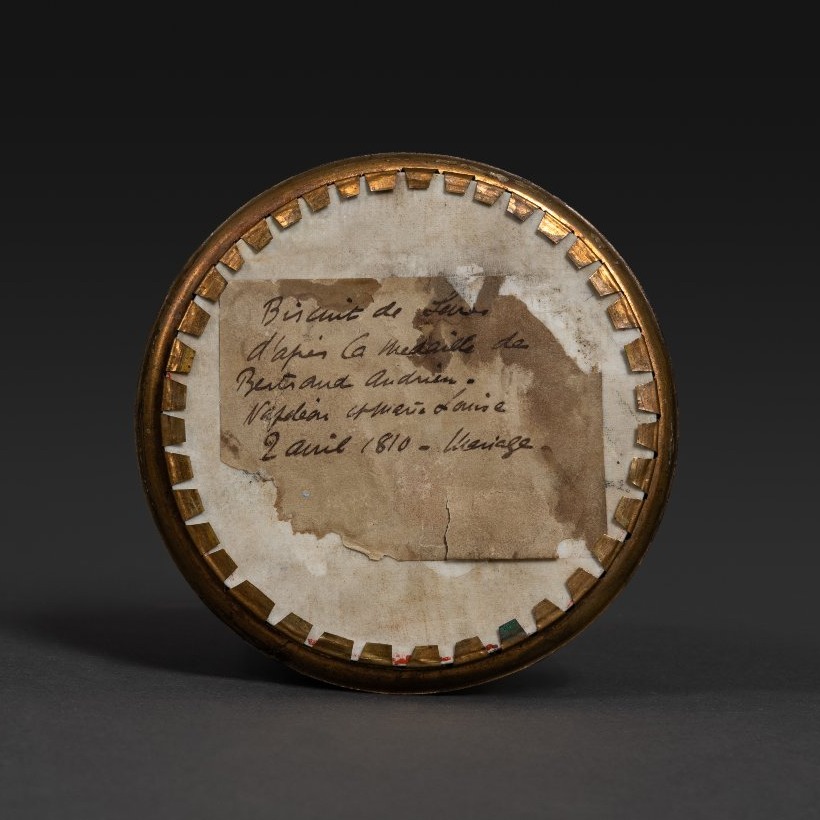 Biscuit de Sèvres
d'après la médaille de
Bertrand Andrieu.
Napoléon et Marie Louise
2 avril 1810 - Mariage.